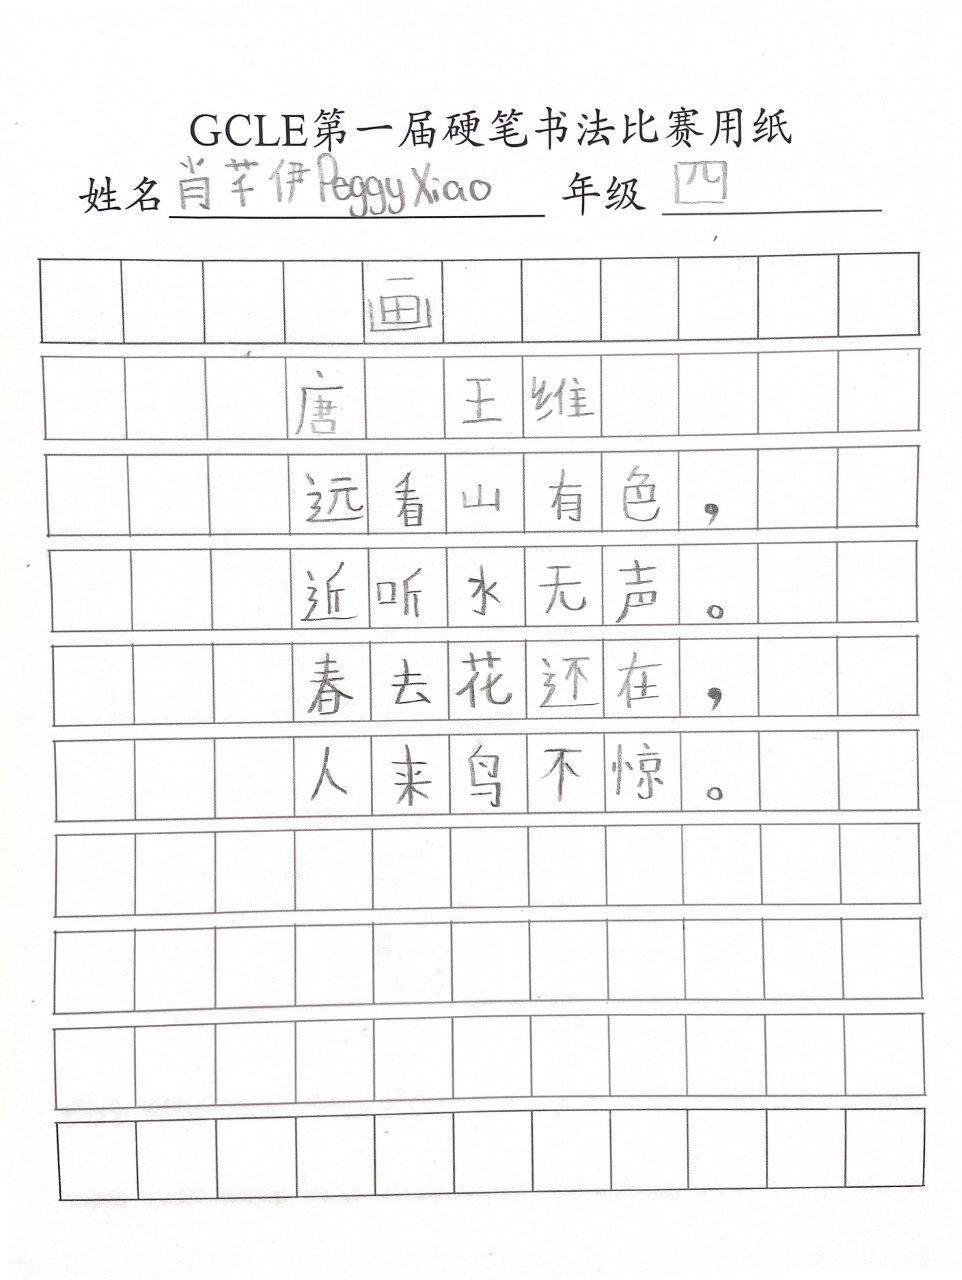 GCLE第一届硬笔书法比赛用纸
姓名 肖芊伊 Peggy Xiao 年级 四
画
唐 王维
远看山有色，
近听水无声。
春去花还在，
人来鸟不惊。